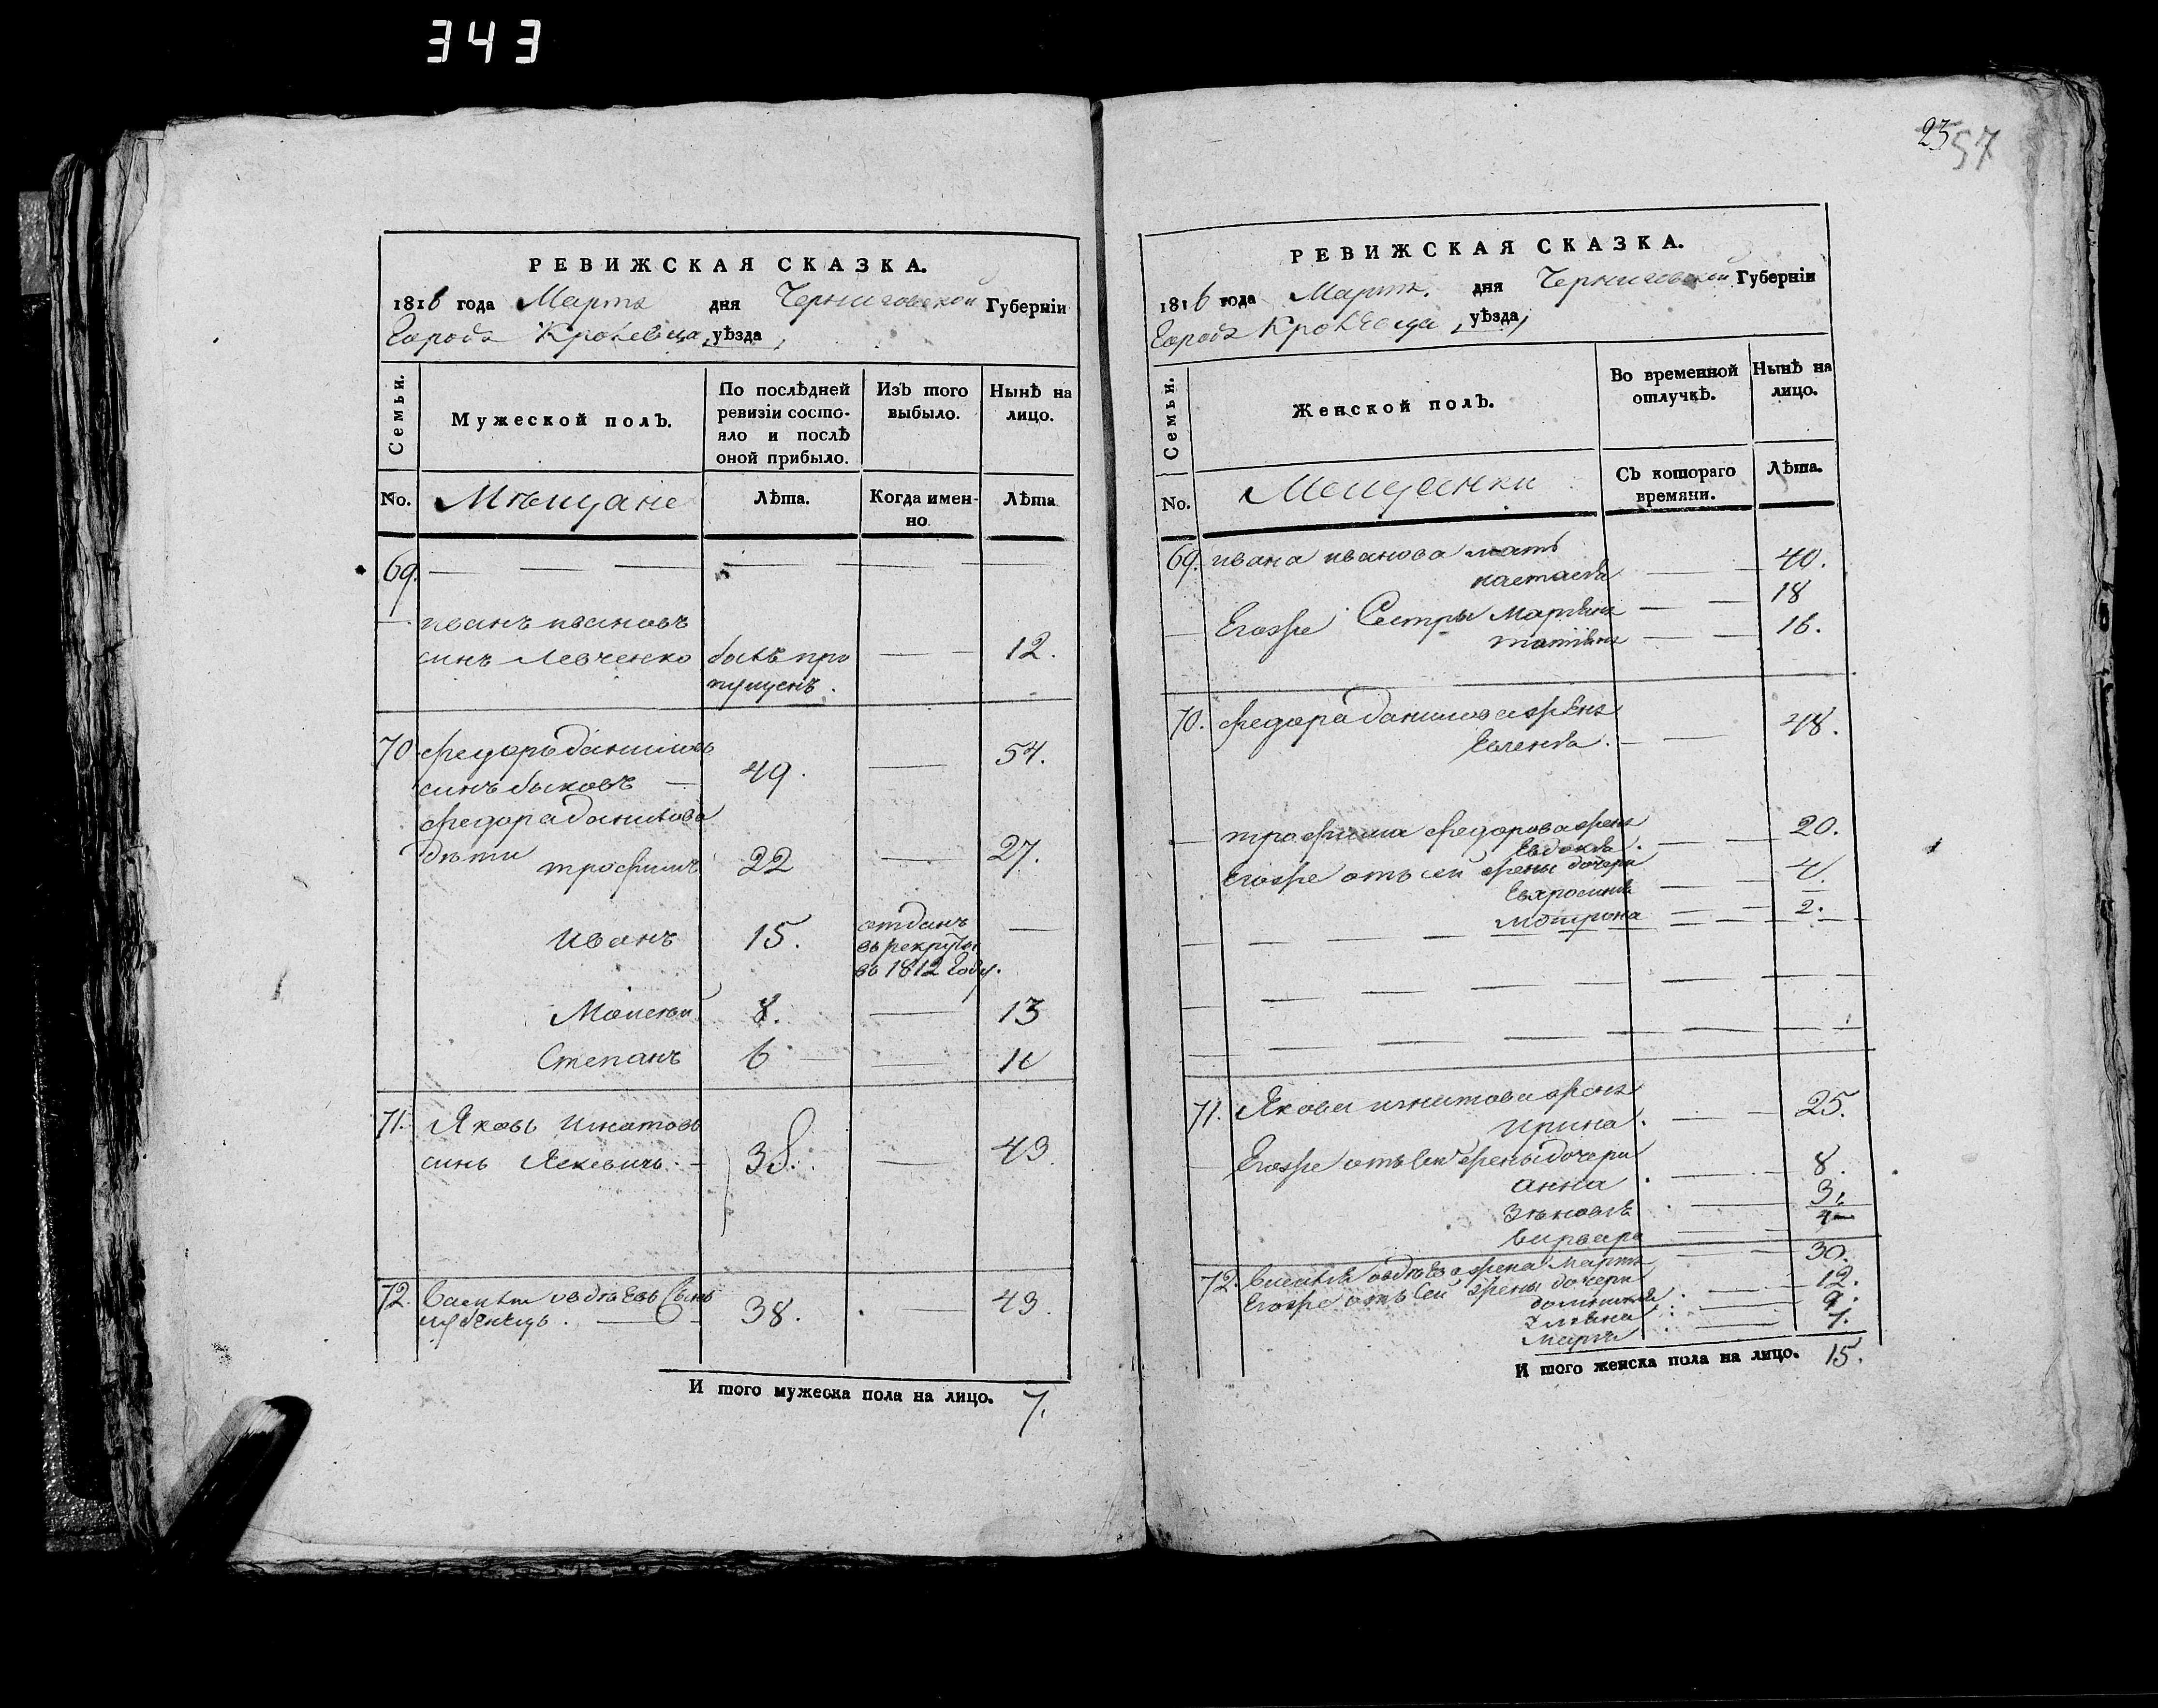 343
23
57
РЕВИЖСКАЯ СКАЗКА.
1816 года Марта дня Черниговской Губерніи
Города Кролевца, уѣзда,
Семьи.
Мужеской полъ.
По послѣдней ревизіи состо-
яло и послѣ
оной прибыло.
Изъ того
выбыло.
Нынѣ на
лицо.
No.
Мѣщане
Лѣта.
Когда имен-
но
Лѣта
69.
иванъ ивановъ
синъ Левченко
билъ про
пущенъ.
12.
70
федоръ даниловъ
синъ быковъ
49.
54.
федора данилова
дѣти
трофимъ
22
27.
иванъ
15.
отданъ
въ рекруты
въ 1812 году.
Моисей
8.
13
Степанъ
6
11
71.
Яковъ игнатовъ
синъ
38.
43
72.
38.
43.
И того мужеска пола на лицо. 7.
РЕВИЖСКАЯ СКАЗКА.
1816 года Марта. дня Черниговской Губерніи
Города Кролевца, уѣзда,
Семьи.
Женской полъ.
Во временной
отлучкѣ.
Нынѣ на
лицо.
No.
Мещанки
Съ котораго
времяни.
Лѣта.
69. ивана иванова мать
настасія
40.
Егожъ Сестры Марѣна
18
татіяна
16.
70. федора данилова жена
48.
трофима федорова жена
Евдокія
20.
Егоже отъ сей жены дочери
4.
мотрона
2.
71. Якова игнатова жена
ирина.
25.
Егоже отъ сей жены дочери
анна
8.
3.
варвара
4
72.
жена Марта
30.
Егоже отъ сей жены дочери
12.
9.
Марта
7.
И того женска пола на лицо. 15.